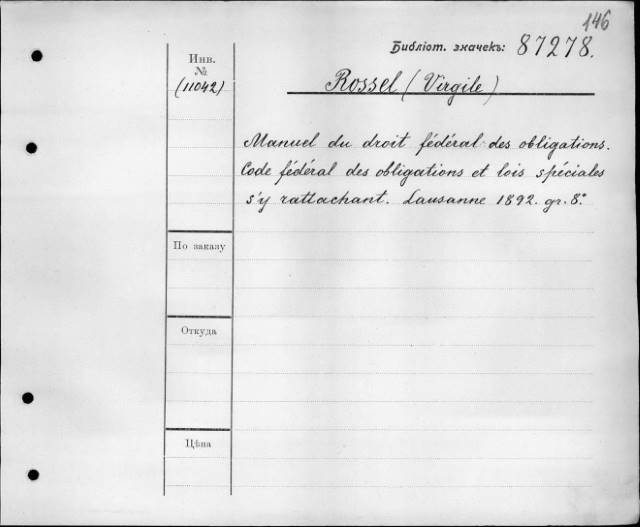 146
Библіот. значекъ: 87278.
Инв.
№
(11042)
Rossel (Virgile)
Manuel du droit fédéral des obligations.
Code fédéral des obligations et lois spéciales
s'y rattachant. Lausanne 1892. gr. 8°
По заказу
Откуда
Цѣна